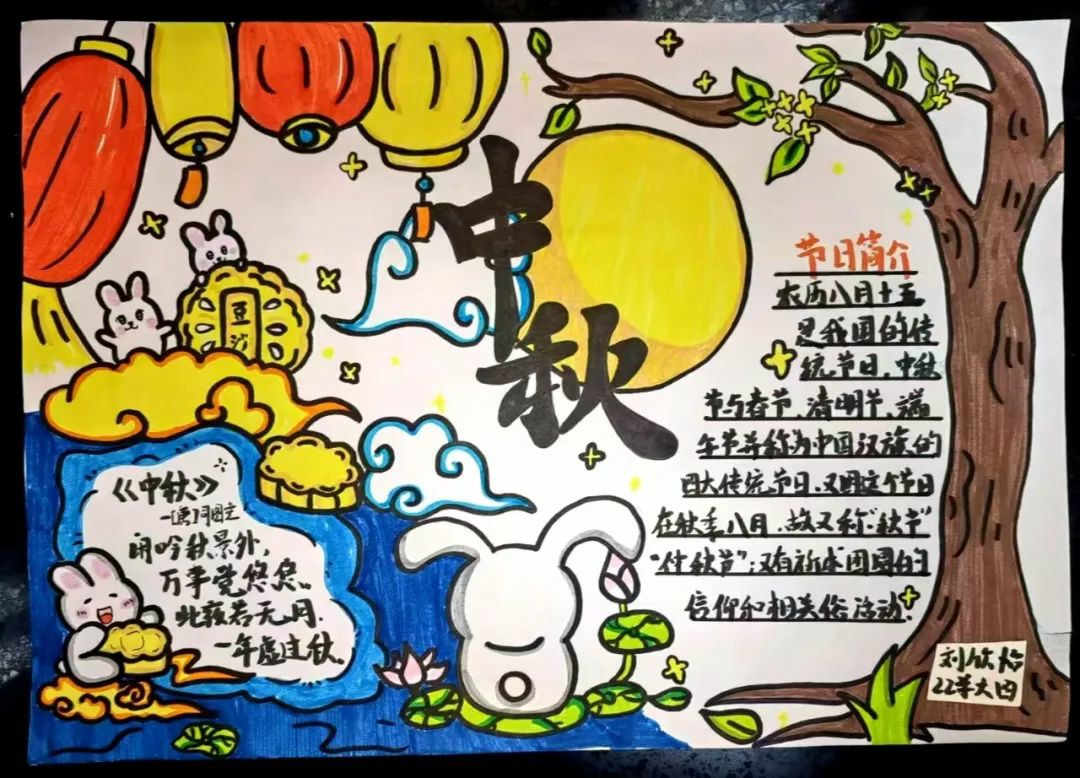 中
秋
豆沙
《中秋》
闲吟秋景外,
万事觉悠悠。
此夜若无月,
一年虚过秋。
节日简介
农历八月十五
是我国的传
统节日,中秋
节与春节、清明节、端
午节并称为中国汉族的
四大传统节日.又因这个节日
在秋季八月,故又称"秋节"
"仲秋节";又有祈求团圆的
信仰和相关俗活动.
刘欣怡